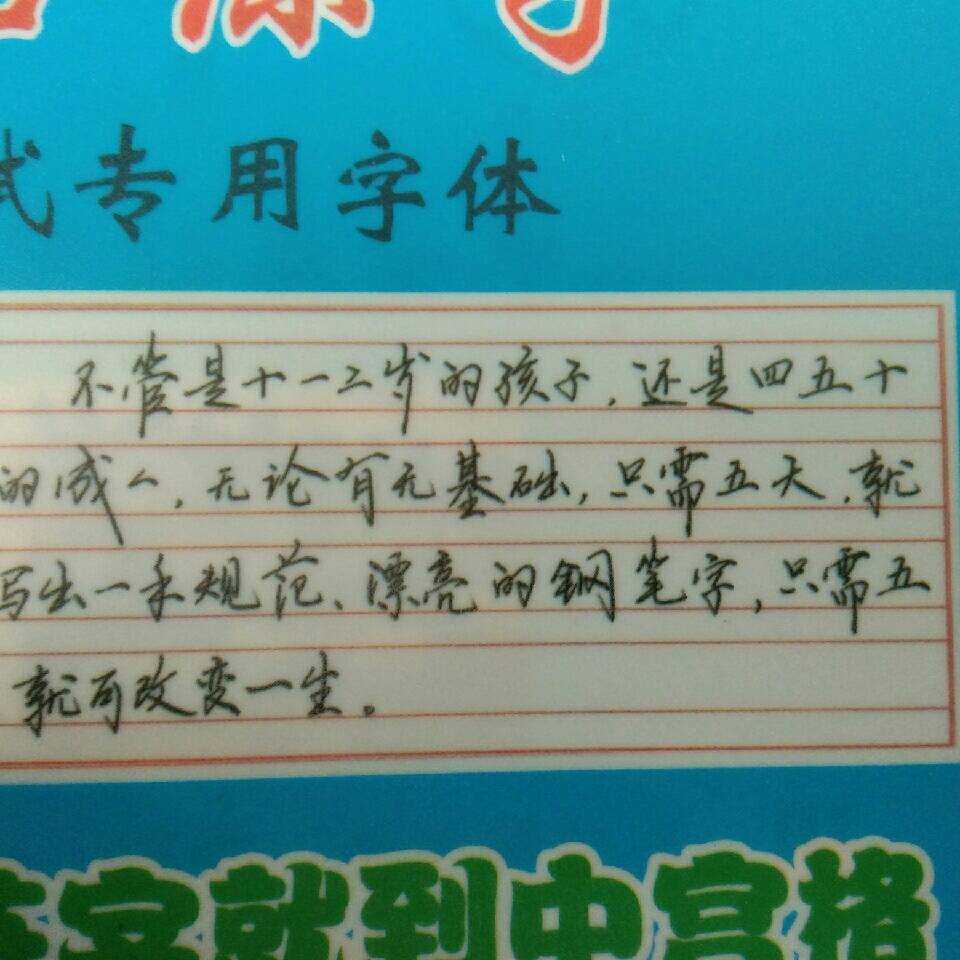 试专用字体
不管是十一二岁的孩子,还是四五十
的成人,无论有无基础,只需五天,就
写出一手规范、漂亮的钢笔字,只需五
就可改变一生。
字就到中宫格